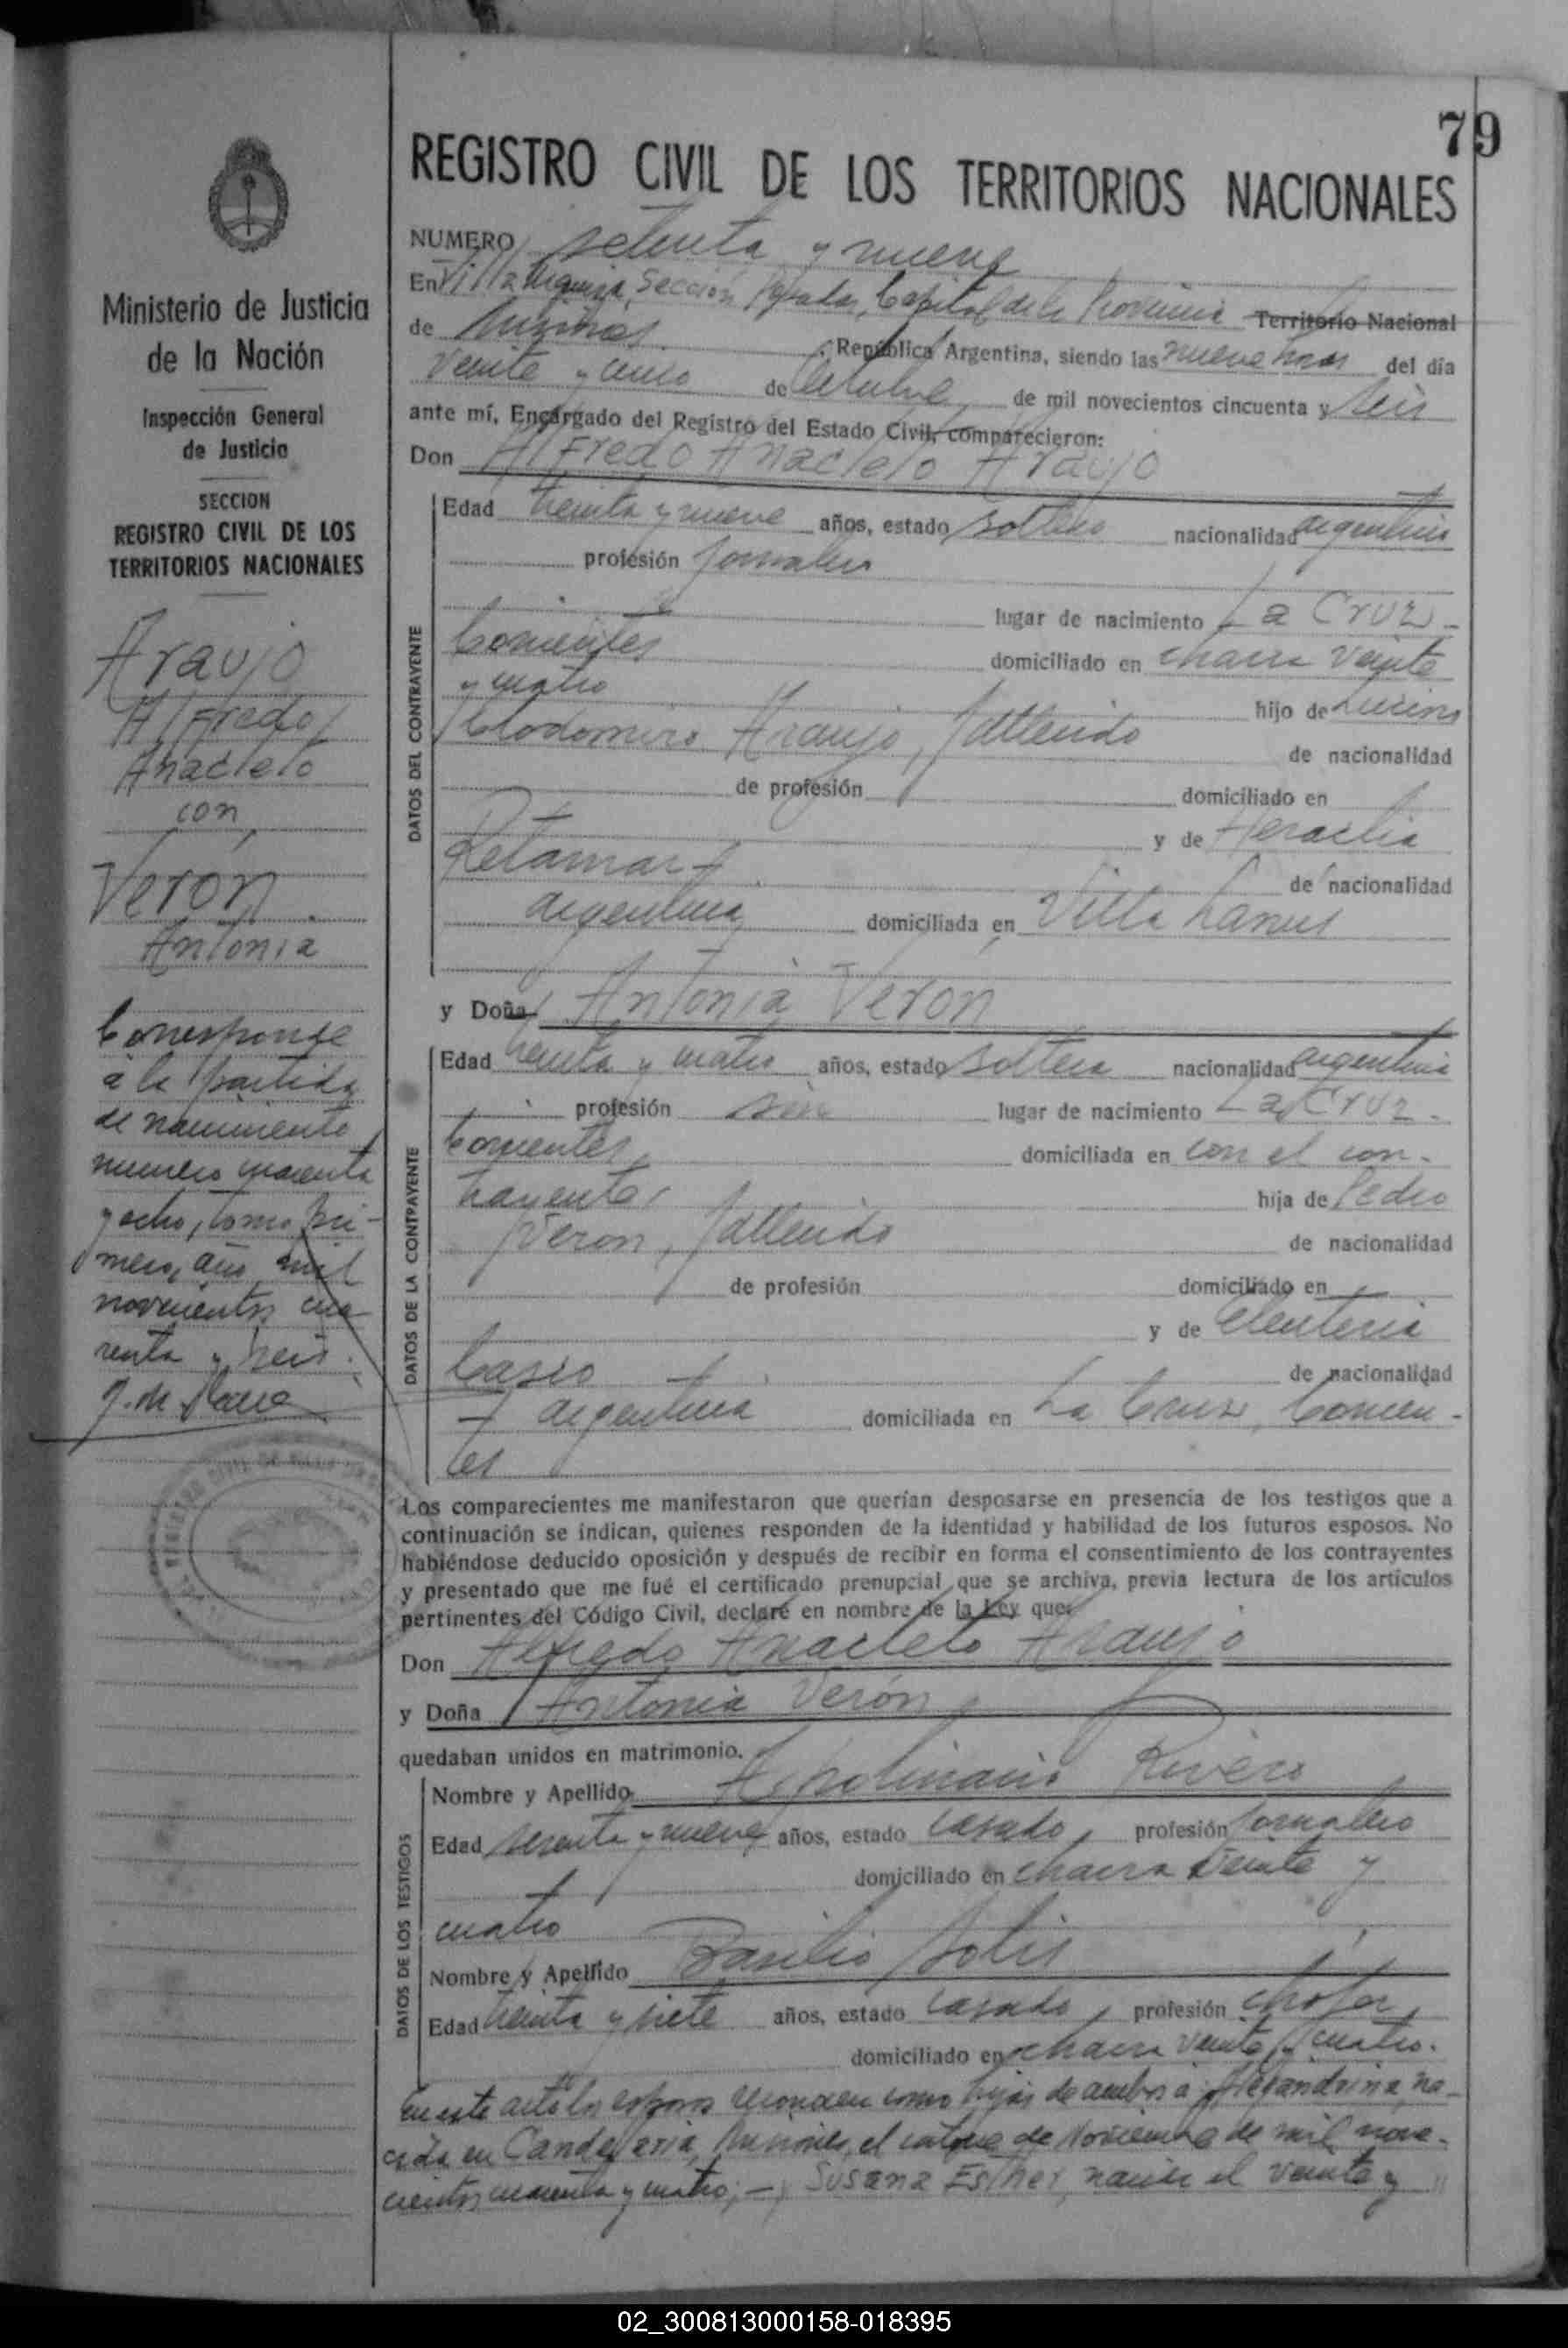 79
REGISTRO CIVIL DE LOS TERRITORIOS NACIONALES
Ministerio de Justicia
de la Nación
Inspección General
de Justicia
SECCION
REGISTRO CIVIL DE LOS
TERRITORIOS NACIONALES
Araujo
Alfredo
Anacleto
con
Verón
Antonia
Corresponde
a la partida
de nacimiento
numero cuarenta
y ocho, tomo pri-
mero, año mil
novecientos cua
renta y seis.
NUMERO setenta y nueve
En Villa Urquiza, Sección Posadas, Capital de la Provincia Territorio Nacional
de Misiones República Argentina, siendo las nueve horas del día
veinte y cinco de Octubre de mil novecientos cincuenta y seis
ante mí, Encargado del Registro del Estado Civil, comparecieron:
Don Alfredo Anacleto Araujo
DATOS DEL CONTRAYENTE
Edad treinta y nueve años, estado soltero nacionalidad argentino
profesión jornalero
lugar de nacimiento La Cruz-
Corrientes domiciliado en chacra veinte
y cuatro hijo de Lucino
Clodomiro Araujo, fallecido de nacionalidad
de profesión domiciliado en
y de Heraclia
Retamar de nacionalidad
argentina domiciliada en Villa Lanus
y Doña Antonia Verón
DATOS DE LA CONTRAYENTE
Edad treinta y cuatro años, estado soltera nacionalidad argentina
profesión sin lugar de nacimiento La Cruz-
Corrientes domiciliada en con el con-
trayente, hija de Pedro
Verón, fallecido de nacionalidad
de profesión domiciliado en
y de Eleuteria
Casco de nacionalidad
argentina domiciliada en La Cruz, Corrien-
tes
Los comparecientes me manifestaron que querían desposarse en presencia de los testigos que a
continuación se indican, quienes responden de la identidad y habilidad de los futuros esposos. No
habiéndose deducido oposición y después de recibir en forma el consentimiento de los contrayentes
y presentado que me fué el certificado prenupcial que se archiva, previa lectura de los artículos
pertinentes del Código Civil, declaré en nombre de la Ley que:
Don Alfredo Anacleto Araujo
y Doña Antonia Verón
quedaban unidos en matrimonio.
DATOS DE LOS TESTIGOS
Nombre y Apellido Apolinario Rivero
Edad sesenta y nueve años, estado casado, profesión jornalero
domiciliado en chacra veinte y
cuatro
Nombre y Apellido Basilio Solis
Edad treinta y siete años, estado casado, profesión chofer,
domiciliado en chacra veinte y cuatro.
En este acto los esposos reconocen como hijos de ambos a: Alejandrina, na-
cida en Candelaria, Misiones, el catorce de Noviembre de mil nove-
cientos cuarenta y cuatro; - Susana Esther, nacida el veinte y
02_300813000158-018395